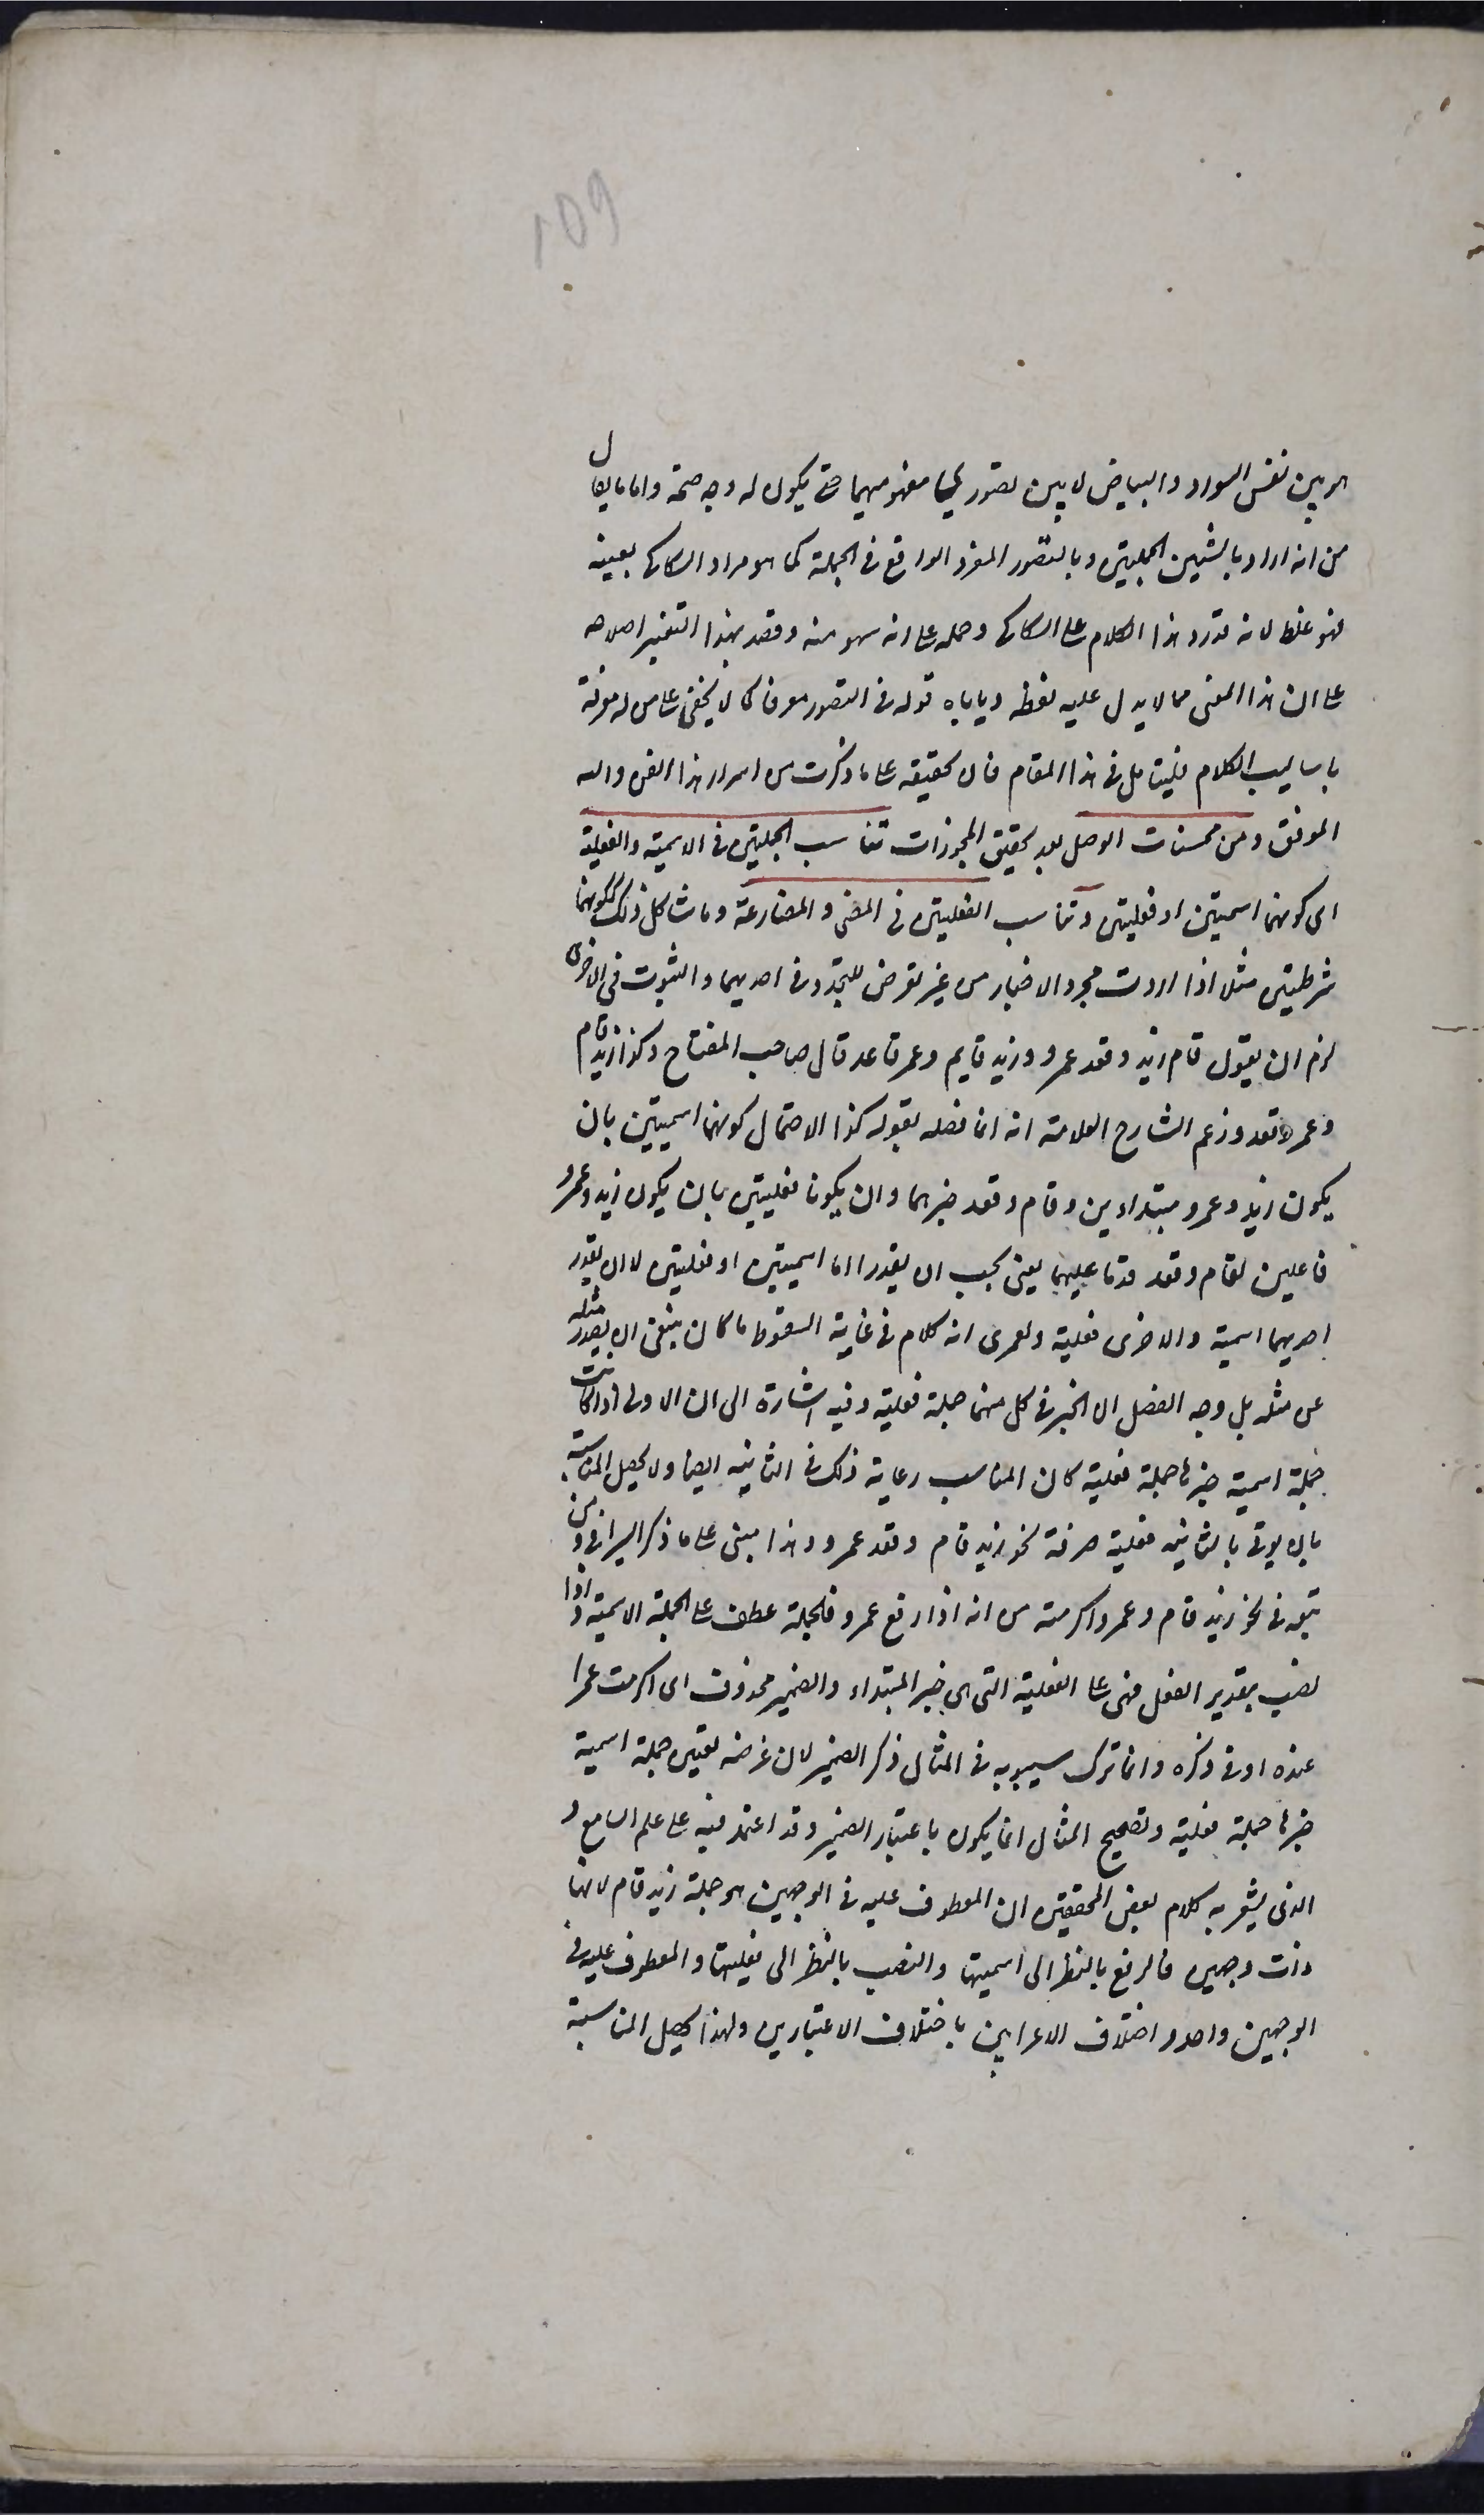 109
هو بين نفس السواد والبياض لا بين تصوري مفهوميهما حتى يكون له وجه صحة واما ما يقال
من انه اراد بالشيئين الجملتين وبالتصور المفرد الواقع في الجملة كما هو مراد السكاكي بعينه
فهو غلط لانه قد رد هذا الكلام على السكاكي وحمله على انه سهو منه وقصد بهذا التغيير اصلاحه
على ان هذا المعنى مما لا يدل عليه لفظه وياباه قوله في التصور معرفا كما لا يخفى على من له معرفة
باساليب الكلام فليتامل في هذا المقام فان تحقيقه على ما ذكرت من اسرار هذا الفن والله
الموفق ومن محسنات الوصل بعد تحقيق المجوزات تناسب الجملتين في الاسمية والفعلية
اى كونهما اسميتين او فعليتين وتناسب الفعليتين في المضى والمضارعة وما شاكل ذلك ككونهما
شرطيتين مثلا اذا اردت مجرد الاخبار من غير تعرض للتجدد في احديهما والثبوت في الاخرى
لزم ان يقول قام زيد وقعد عمرو وزيد قايم وعمر قاعد قال صاحب المفتاح وكذا زيد قام
وعمرو قعد وزعم الشارح العلامة انه انما فصله بقوله كذا الاحتمال كونهما اسميتين بان
يكون زيد وعمرو مبتدادين وقام وقعد خبرهما وان يكونا فعليتين بان يكون زيد وعمرو
فاعلين لقام وقعد قدما عليهما يعنى يجب ان يقدرا اما اسميتين او فعليتين لا ان يقدر
احديهما اسمية والاخرى فعلية ولعمرى انه كلام في غاية السقوط ما كان ينبغى ان يصدر مثله
عن مثله بل وجه الفصل ان الخبر في كل منهما جملة فعلية وفيه اشارة الى ان الاولى اذا كانت
جملة اسمية خبرها جملة فعلية كان المناسب رعاية ذلك في الثانيه ايضا ولا يحصل المناسبة
بان يوتى بالثانيه فعلية صرفة نحو زيد قام وقعد عمرو وهذا مبنى على ما ذكر السيرافي ومن
تبعه في نحو زيد قام وعمرو اكرمته من انه اذا رفع عمرو فالجملة عطف على الجملة الاسمية واذا
نصب بتقدير الفعل فهى على الفعلية التى هى خبر المبتداء والضمير محذوف اى اكرمت عمرا
عنده او في ذكره وانما ترك سيبويه في المثال ذكر الضمير لان غرضه تعيين جملة اسمية
خبرها جملة فعلية وتصحيح المثال انما يكون باعتبار الضمير وقد اعتمد فيه على علم السامع و
الذى يشعر به كلام بعض المحققين ان المعطوف عليه في الوجهين هو جملة زيد قام لانها
ذات وجهين فالرفع بالنظر الى اسميتها والنصب بالنظر الى فعليتها والمعطوف عليه في
الوجهين واحد واختلاف الاعرابين باختلاف الاعتبارين ولهذا يحصل المناسبة